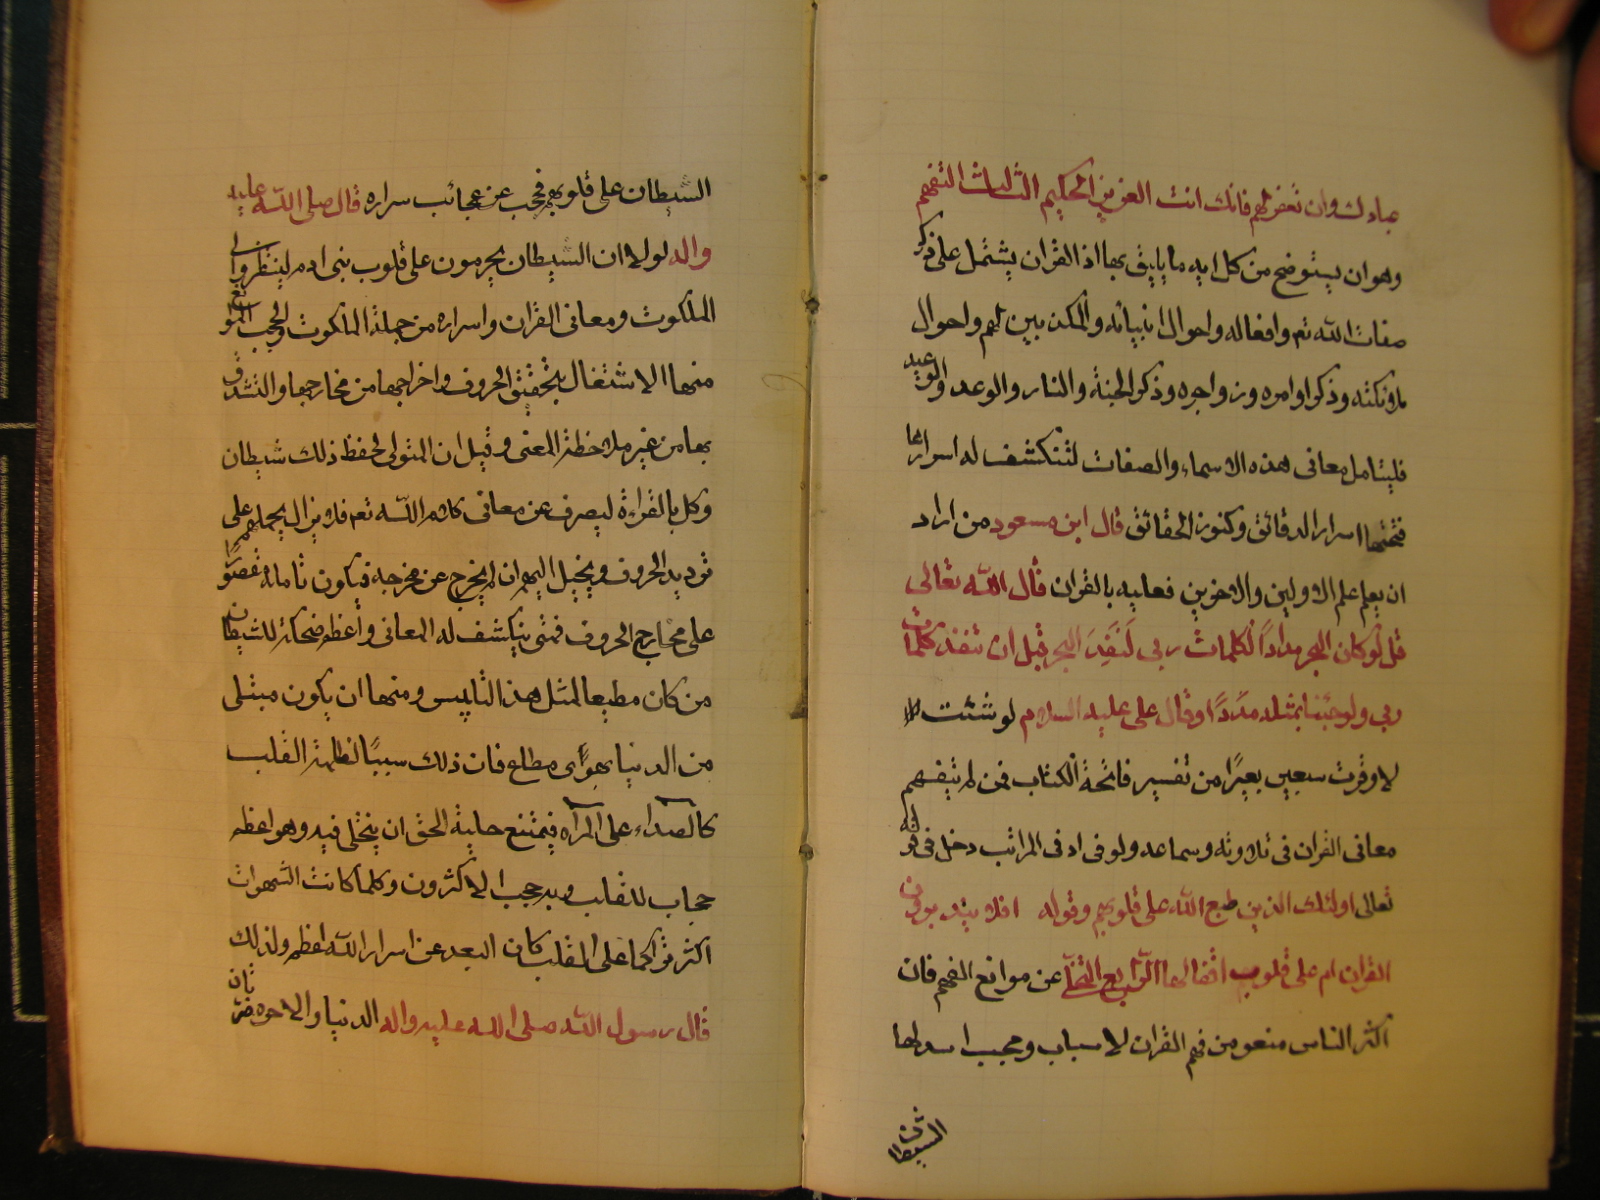 عبادك وان تغفر لهم فانك انت العزيز الحكيم الثالث التفهم
وهو ان يستوضح من كل ايه ما يليق بها اذ القران يشتمل على ذكر
صفات الله تع وافعاله واحوال انبيائه والمكذبين لهم واحوال
ملائكته وذكر اوامره وزواجره وذكر الجنة والنار والوعد والوعيد
فليتامل معانى هذه الاسماء والصفات لتنكشف له اسرارها
فتحتها اسرار الدقائق وكنوز الحقائق قال ابن مسعود من اراد
ان يعلم علم الاولين والاخرين فعليه بالقران قال الله تعالى
قل لو كان البحر مدادًا لكلمات ربى لَنَفِدَ البحر قبل ان تنفد كلمات
ربى ولو جئنا بمثله مددًا وقال على عليه السلام لو شئت
لاوقرت سبعين بعيرًا من تفسير فاتحة الكتاب فمن لم يتفهم
معانى القران فى تلاوته وسماعه ولو فى ادنى المراتب دخل فى قوله
تعالى اولئك الذين طبع الله على قلوبهم وقوله افلا يتدبرون
القران ام على قلوب اقفالها الرّابع التخلّى عن موانع الفهم فان
اكثر الناس منعو من فهم القران لاسباب وحجب اسدلها
الشيطان
الشيطان على قلوبهم فحجب عن عجائب سراره قال صلى الله عليه
واله لولا ان الشيطان يحرمون على قلوب بنى ادم لينظروا الى
الملكوت ومعانى القران واسراره من جملة الملكوت والحجب الموانع
منها الاشتغال بتحقيق الحروف واخراجها من مخارجها والتشدق
بها من غير ملاحظة المعنى وقيل ان المتولى لحفظ ذلك شيطان
وكل بالقراءة ليصرف عن معانى كلام الله تع فلا يزال يحملهم على
ترديد الحروف ويخيل اليهم ان لم يخرج عن مخرجه فيكون تامله مقصورًا
على مخارج الحروف فمتى ينكشف له المعانى واعظم ضحكة للشيطان
من كان مطيعا لمثل هذا التلبيس ومنها ان يكون مبتلى
من الدنيا بهواى مطاع فان ذلك سببًا لظلمة القلب
كالصداء على المرآه فيمتنع جلية الحق ان يتجلى فيه وهو اعظم
حجاب للقلب وبه حجب الاكثرون وكلما كانت الشهوات
اكثر تراكما على القلب كان البعد عن اسرار الله اعظم ولذلك
قال رسول الله صلى الله عليه واله الدنيا والاخره ضرتان